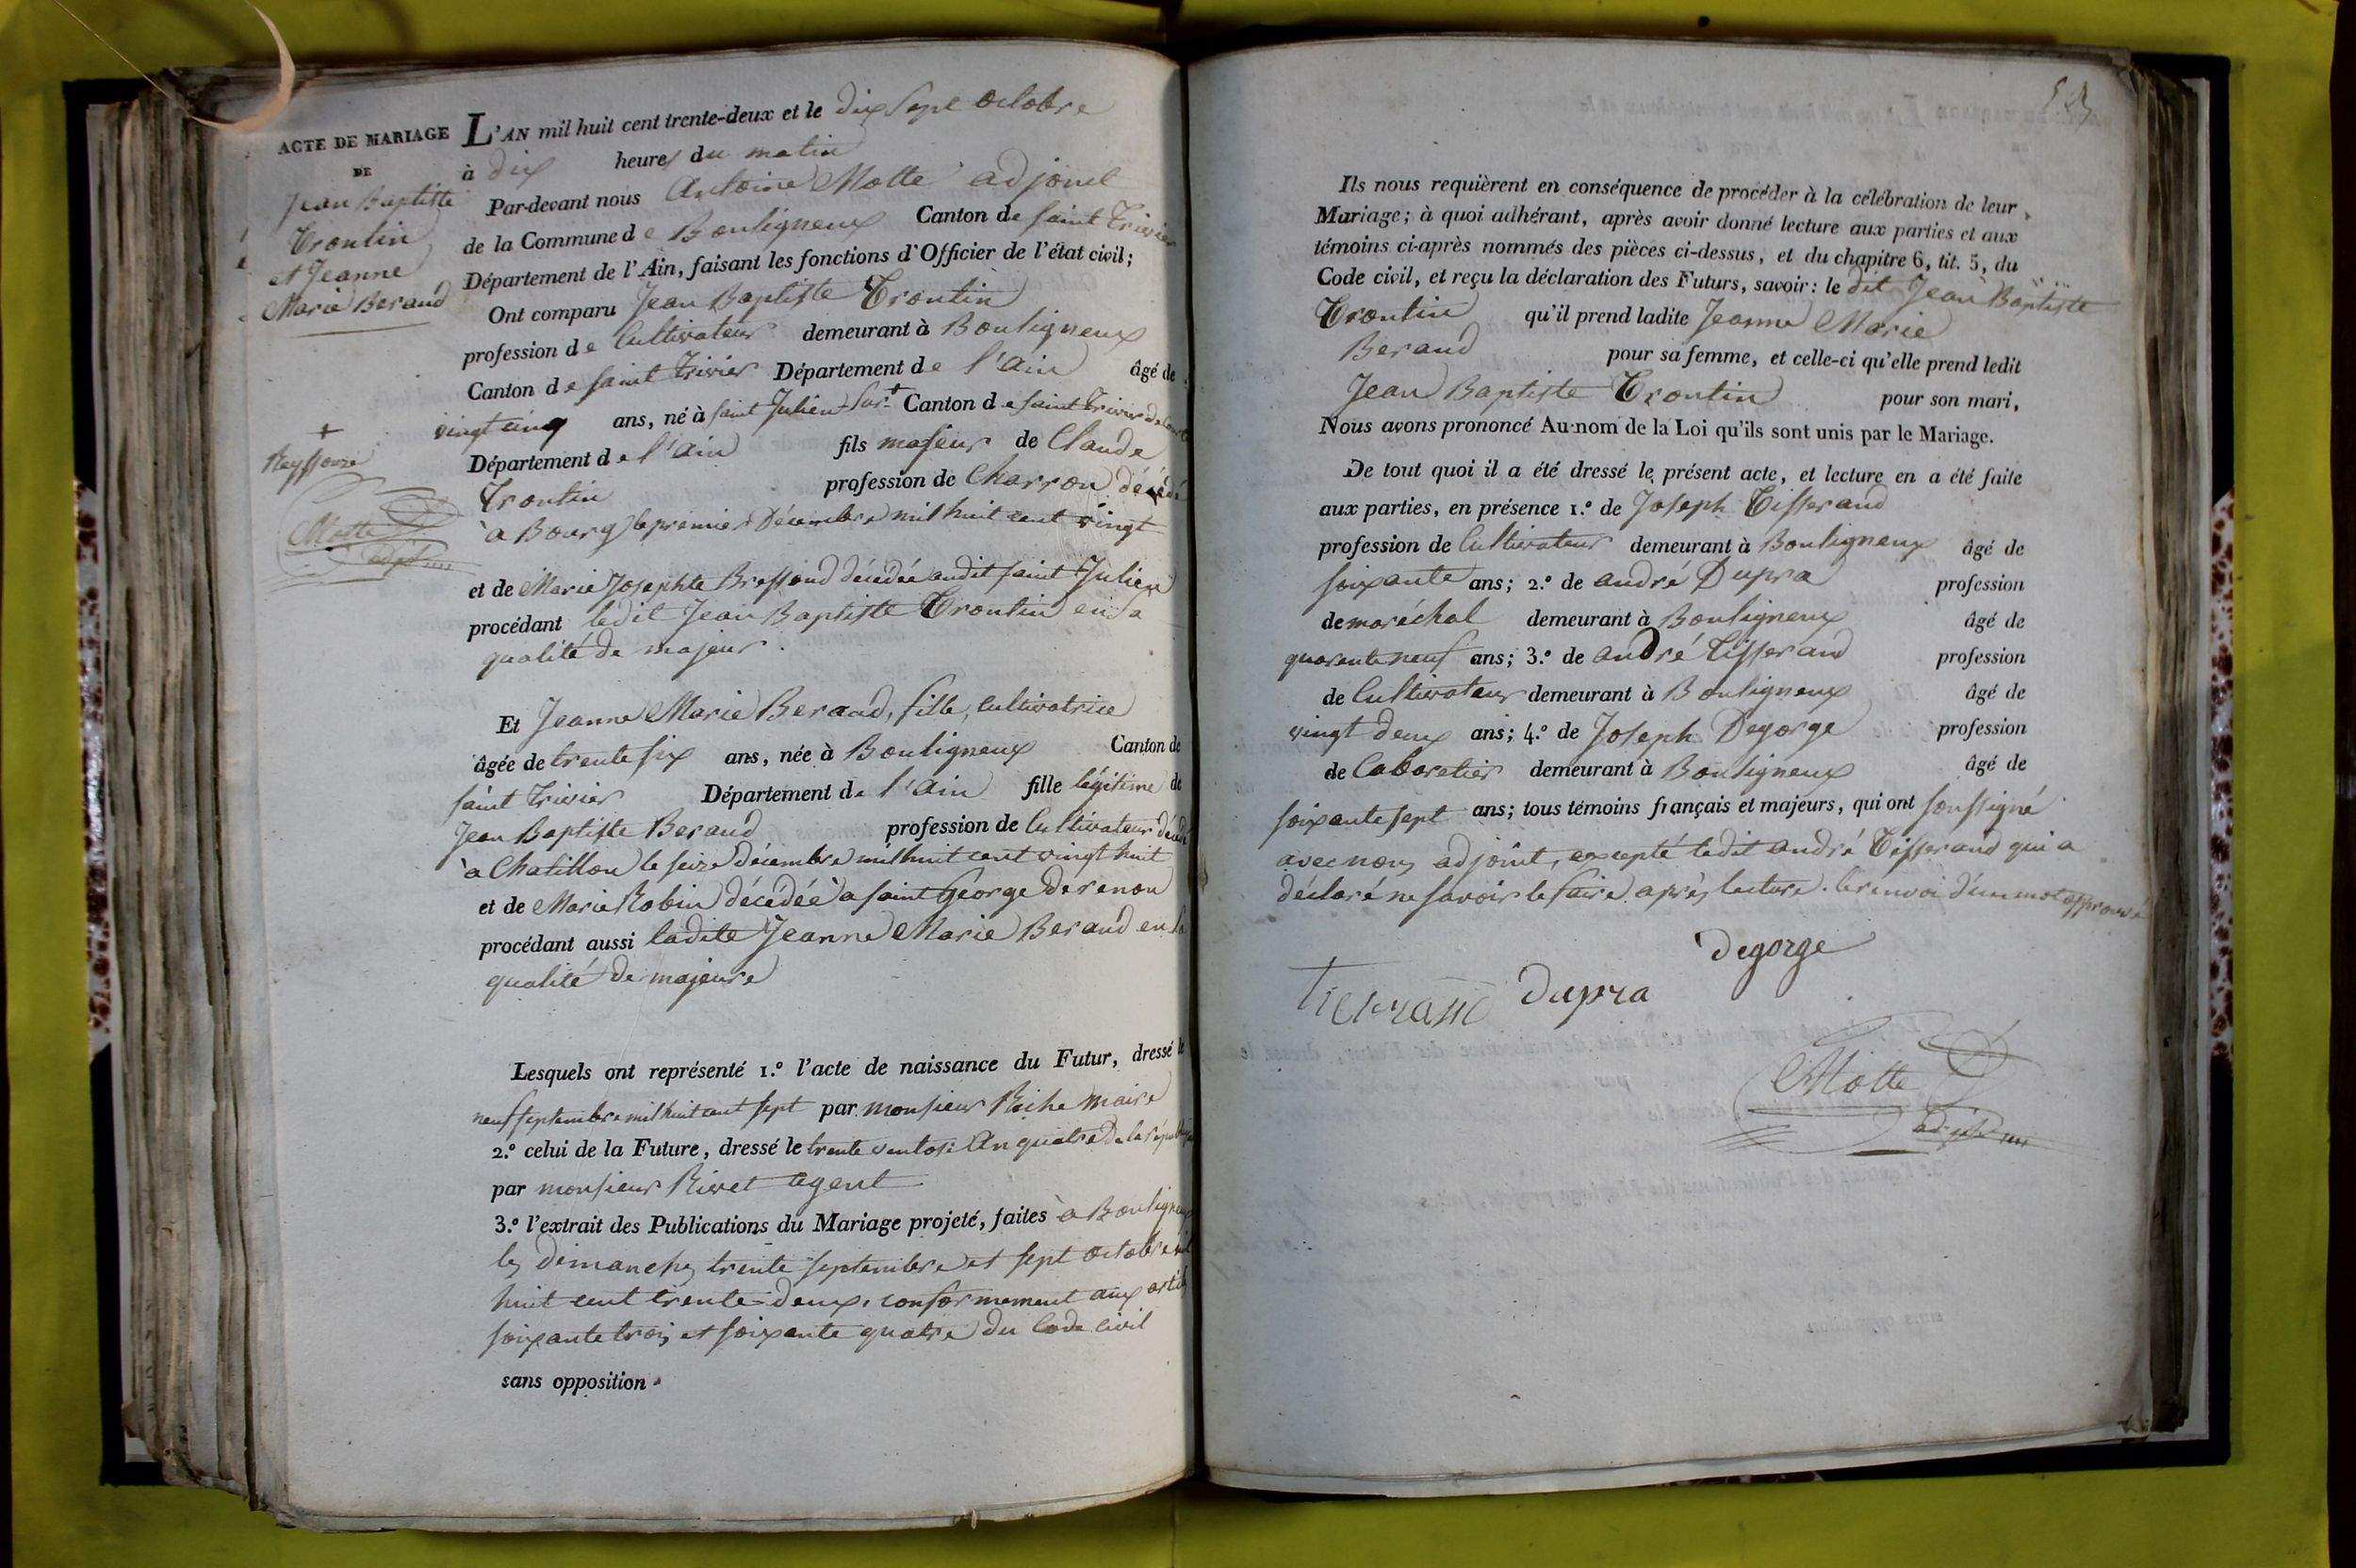 ACTE DE MARIAGE
DE
Jean Baptiste
Trontin
et Jeanne
Marie Beraud
+
Reyssouze
Motte
adjoint
L'AN mil huit cent trente-deux et le dix Sept octobre
à dix heures du matin
Par-devant nous Antoine Motte adjoint
de la Commune de Bouligneux Canton de saint Trivier
Département de l'Ain, faisant les fonctions d'Officier de l'état civil;
Ont comparu Jean Baptiste Trontin
profession de Cultivateur demeurant à Bouligneux
Canton de saint Trivier Département de l'ain âgé de
vingt cinq ans, né à saint Julien sur + Canton de saint Trivier de
Département de l'ain fils majeur de Claude
Trontin profession de Charron décédé
à Bourg le premier Décembre mil huit cent vingt
et de Marie Josephte Bressoud décédée audit saint Julien
procédant ledit Jean Baptiste Trontin en sa
qualité de majeur.
Et Jeanne Marie Beraud, fille, cultivatrice
âgée de trente six ans, née à Bouligneux Canton de
saint Trivier Département de l'ain fille légitime de
Jean Baptiste Beraud profession de Cultivateur décédé
à Chatillon le seize décembre mil huit cent vingt huit
et de Marie Robin décédée à saint George de renon
procédant aussi ladite Jeanne Marie Beraud en sa
qualité de majeure
Lesquels ont représenté 1.º l'acte de naissance du Futur, dressé le
neuf septembre mil huit cent sept par monsieur Riche maire
2.º celui de la Future, dressé le trente ventose An quatre de la république
par monsieur Rivet agent
3.º l'extrait des Publications du Mariage projeté, faites à Bouligneux
les dimanches trente septembre et sept octobre mil
huit cent trente deux, conformement aux articles
soixante trois et soixante quatre du Code civil
sans opposition.
Ils nous requièrent en conséquence de procéder à la célébration de leur
Mariage; à quoi adhérant, après avoir donné lecture aux parties et aux
témoins ci-après nommés des pièces ci-dessus, et du chapitre 6, tit. 5, du
Code civil, et reçu la déclaration des Futurs, savoir: le dit Jean Baptiste
Trontin qu'il prend ladite Jeanne Marie
Beraud pour sa femme, et celle-ci qu'elle prend ledit
Jean Baptiste Trontin pour son mari,
Nous avons prononcé Au nom de la Loi qu'ils sont unis par le Mariage.
De tout quoi il a été dressé le présent acte, et lecture en a été faite
aux parties, en présence 1.º de Joseph Tisserand
profession de Cultivateur demeurant à Bouligneux âgé de
soixante ans; 2.º de andré Dupra profession
de maréchal demeurant à Bouligneux âgé de
quarante neuf ans; 3.º de andré Tisserand profession
de Cultivateur demeurant à Bouligneux âgé de
vingt deux ans; 4.º de Joseph Degorge profession
de Cabaretier demeurant à Bouligneux âgé de
soixante sept ans; tous témoins français et majeurs, qui ont soussigné
avec nous adjoint, excepté ledit andré Tisserand qui a
déclaré ne savoir le faire après lecture. le renvoi d'un mot approuvé
degorge
dupra
Motte
adjoint